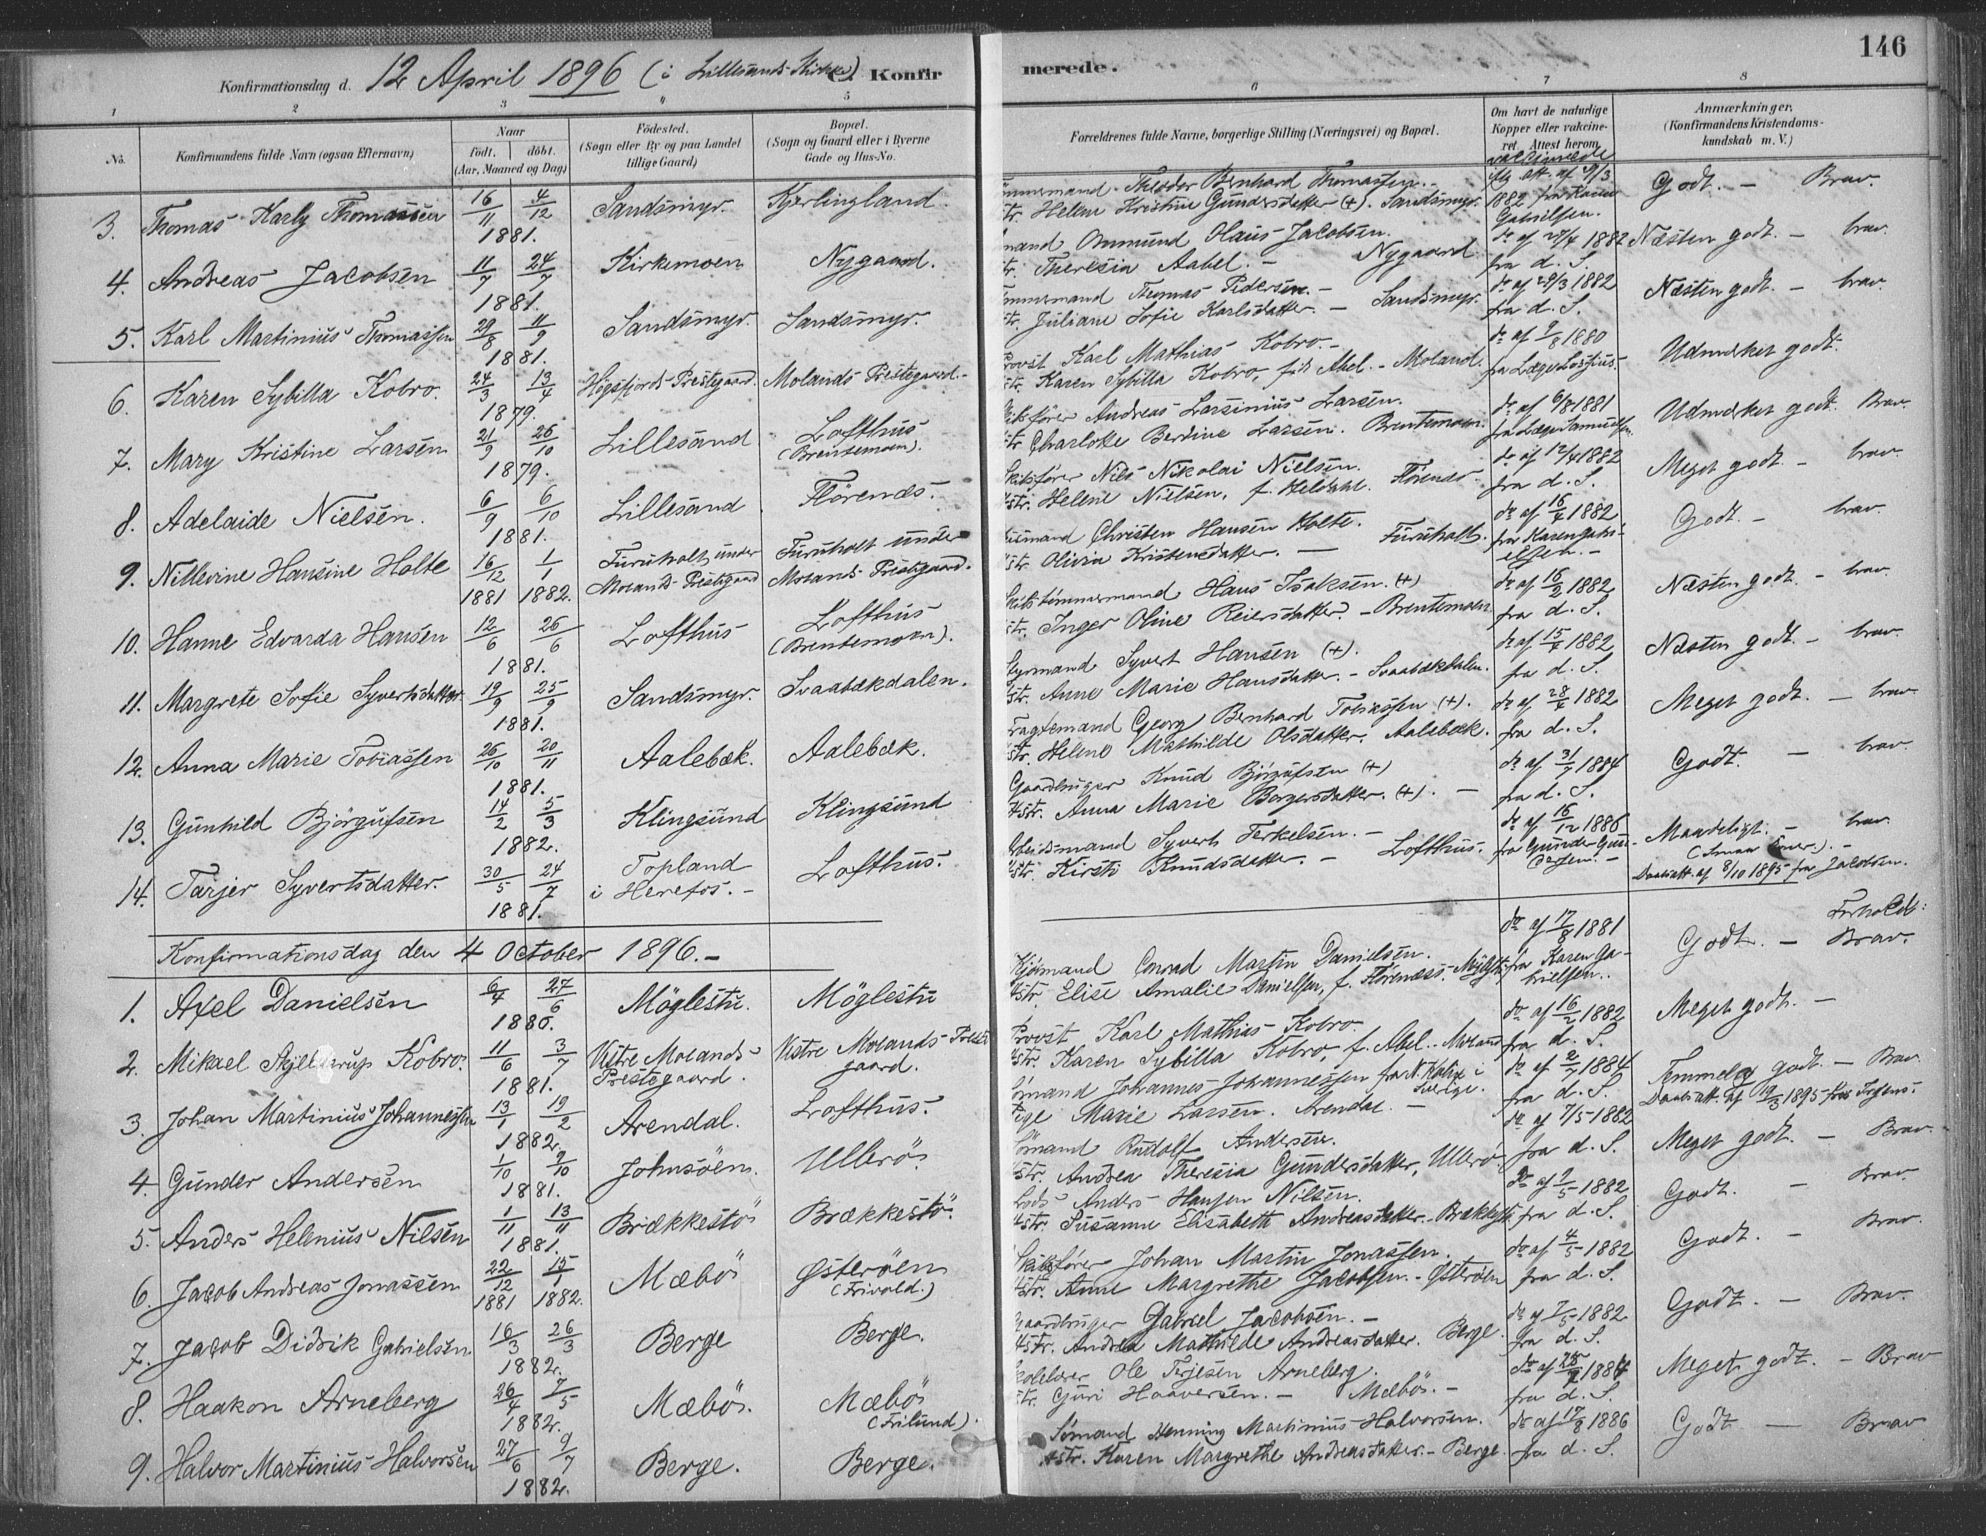 146
Konfirmationsdag d. 12 April 1896 (i Lillesands Kirke) C. Konfirmerede.
1 2 3 4 5 6 7 8
No. Konfirmandens fulde Navn (ogsaa Efternavn) Naar født. døbt. (Aar, Maaned og Dag) Fødested. (Sogn eller By og paa Landet tillige Gaard) Bopæl. (Sogn og Gaard eller i Byerne Gade og Hus-No. Forældrenes fulde Navne, borgerlige Stilling (Næringsvei) og Bopæl. Om havt de naturlige Kopper eller vakcineret. Attest herom. Anmærkninger. (Konfirmandens Kristendomskundskab m. V.)
3. Thomas Karly Thomassen 16/11 4/12 1881. Sandsmyr. Kjerlingland. Theodor Bernhard Thomassen. - Helene Kristine Gundersdatter (+). Sandsmyr. vaccinerede 1882 fra Karen Gabrielsen. Godt. - Brav.
4. Andreas Jacobsen 11/7 24/7 1881. Kirkemoen Nygaard. Hans Jacobsen. Theresia Aabel. - Nygaard do af 27/4 1882 fra d. S. Næsten godt. - brav.
5. Karl Martinius Thomassen 29/8 11/9 1881. Sandsmyr. Sandsmyr. Thomas Pedersen. - Juliane Sofie Karlsdatter. - Sandsmyr. do af 29/3 1882 fra d. S. Næsten godt. - brav.
6. Karen Sybilla Kobro. 24/3 13/4 1879. Høgsfjords Prestegaard. Molands Prestegaard. - Provst Karl Mathias Kobro. - Karen Sybilla Kobro, født Abel. - Moland. 1880 Udmærket godt.
7. Mary Kristine Larsen 21/9 26/10 1879. Lillesand Lofthus (Brentemoen). Andreas Larsinius Larsen. Charlotte Bertine Larsen. Brentemoen. do af 6/8 1881 Udmærket godt. Brav.
8. Adelaide Nielsen. 6/9 6/10 1881. Lillesand Flörenæs. Nils Nikolai Nielsen. Helene Nielsen, f. Heldahl. Flörenæs. do af 12/4 1882 fra d. S. Meget godt. - brav.
9. Nillevine Hansine Holte 16/12 1881 1/1 1882. Furuholt under Molands Prestegaard Furuholt under Molands Prestegaard. Christen Hansen Holte. Olivia Kristensdatter. - Furuholt. do af 16/4 1882 fra Karen Gabrielsen. - Godt. - brav.
10. Hanne Edvarda Hansen 12/6 26/6 1881. Lofthus Lofthus (Brentemoen). Hans Isaksen. (+) Inger Oline Reiersdatter. - Brentemoen do af 16/2 1882 fra d. S. Næsten godt. - brav.
11. Margrete Sofie Syvertsdatter 19/9 25/9 1881. Sandsmyr. Svaabækdalen. Styrmand Syvert Hansen (+). Anne Marie Hansdatter. - Svaabækdalen. do af 15/4 1882 fra d. S. Næsten godt. - brav.
12. Anna Marie Tobiassen 26/10 20/11 1881. Aalebæk. Aalebæk. Fragtemand Georg Bernhard Tobiassen (+). Helene Mathilde Olsdatter. Aalebæk. do af 28/4 1882 fra d. S. Meget godt. - brav.
13. Gunhild Björgufsen 14/2 5/3 1882. Klingsund Klingsund Gaardbruger Knud Björgufsen (+) Hstr. Anna Marie Borgersdatter. (+). - do af 31/7 1884 fra d. S. Godt. - brav.
14. Tarjer Syvertsdatter. 30/5 24/7 1881. Topland i Herefos. - Lofthus. Syvert Terkelsen. - Hstr. Kirsti Knudsdatter. - Lofthus. do af 16/12 1886 fra Gunder Gundersen. - Maadeligt. - brav.
Daabsatt. af 8/10 1895 fra Jacobsen.
Konfirmationsdag den 4 October 1896. -
1. Axel Danielsen 6/4 27/6 1880. Möglestu. Möglestu Conrad Martin Danielsen. Hstr. Elise Amalie Danielsen, f. Florenæss. - Möglestu do af 17/8 1881 fra Karen Gabrielsen.. Godt. - Forhold: Brav.
2. Mikael Skjelderup Kobro. 11/6 3/7 1881. Vestre Molands Prestegaard. Vestre Molands Prestegaard. Provst Karl Mathias Kobro. Hstr. Karen Sybilla Kobro, f. Abel. - Moland do af 16/2 1882 fra d. S. Meget godt. -
3. Johan Martinius Johannessen 13/1 19/2 1882. Arendal. Lofthus. Johannes Johannessen Pige Marie Larsen. Arendal. - do af 2/7 1884 fra d. S. Temmelig godt. - Brav.
4. Gunder Andersen 1/10 9/10 1881. Johnsöen. Ulberö. Sömand Rudolf Andersen. Andrea Theresia Gundersdatter, Ulberö do af 7/5 1882 fra d. S. Meget godt. - Brav.
5. Anders Helenius Nilsen 1/11 13/11 1881. Brækkestö Brækkestö. Lods Anders Hansen Nilsen. Hstr. Susanne Elisabeth Andreasdatter. Brækkestö do af 2/5 1882 fra d. S. Godt. - Brav.
6. Jacob Andreas Jonassen 22/12 1881 15/1 1882. Mæbö Østeröen (Frivold.) Johan Martin Jonassen. Hstr. Anne Margrethe Jacobsen. - Østeröen do af 4/5 1882 fra d. S. Godt. - Brav.
7. Jacob Didrik Gabrielsen 16/3 26/3 1882. Berge Berge. Gaardbruger Gabriel Jacobsen. - Hstr. Andrea Mathilde Andreasdatter. Berge. do af 7/5 1882 fra d. S. Godt. - Brav.
8. Haakon Arneberg 26/4 7/5 1882. Mæbö. Mæbö (Frilund). Ole Terjesen Arneberg. Guri Haaversen. - Mæbö. - 1884 fra d. S. Meget godt. - Brav
9. Halvor Martinius Halvorsen 27/6 9/7 1882. Berge. Berge. Sömand Henning Martinius Halvorsen. Hstr. Karen Margrethe Andreasdatter. - Berge. do af 17/8 1886 fra d. S. Godt - Brav